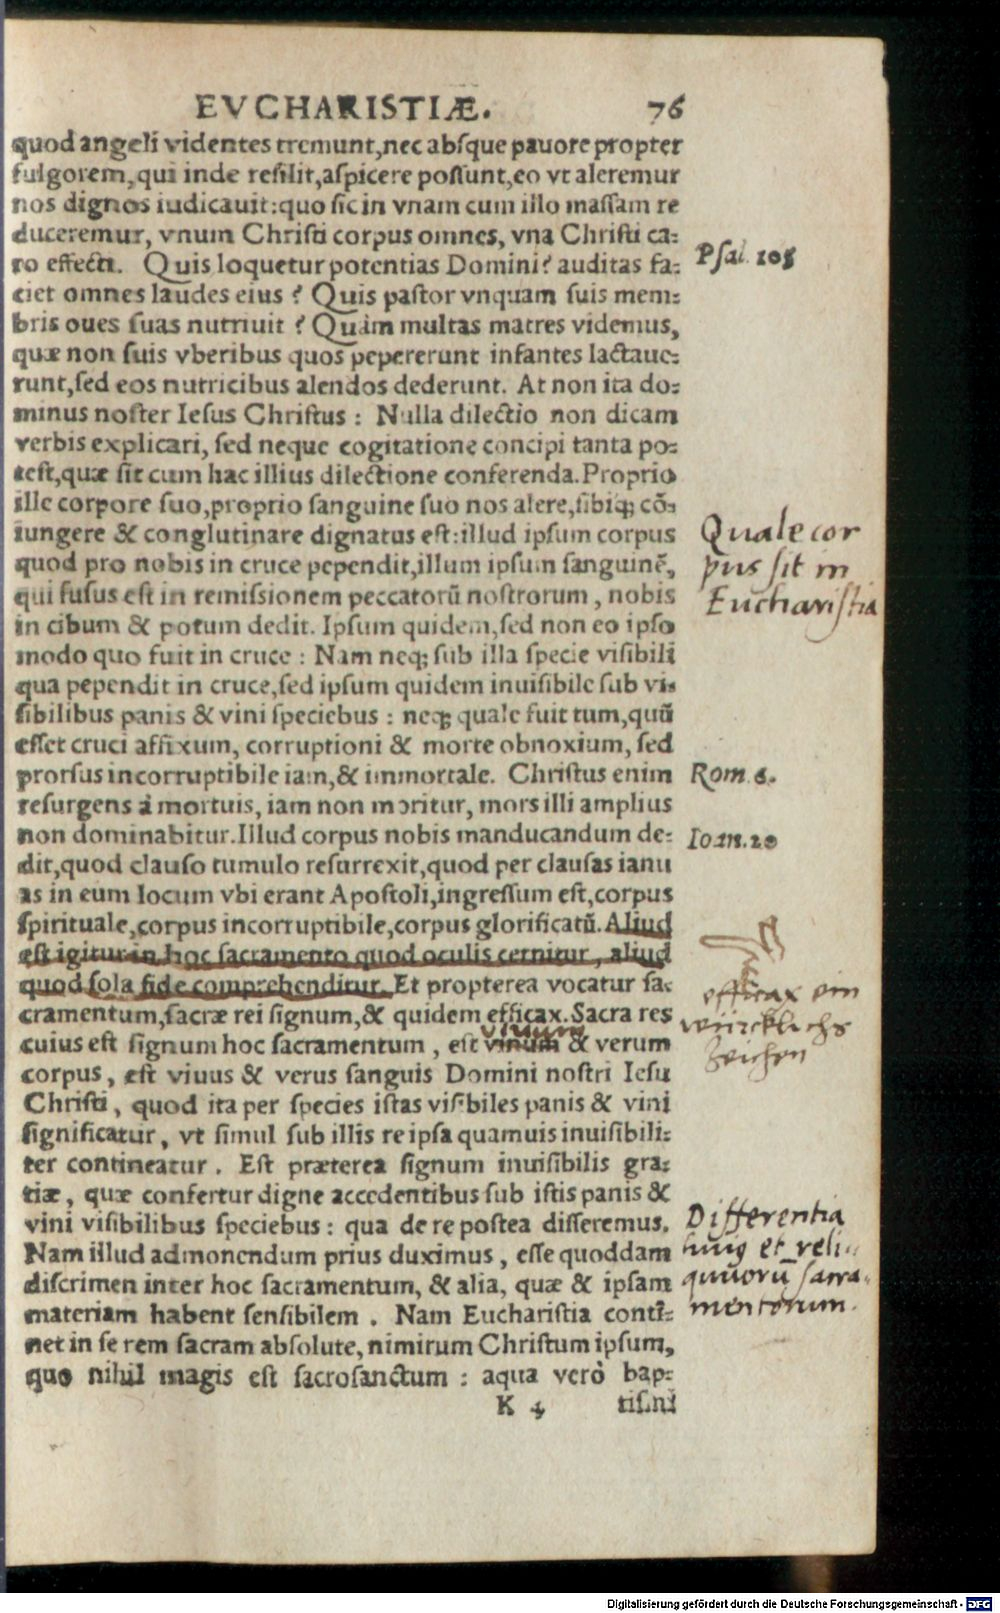 EVCHARISTIÆ. 76
quod angeli videntes tremunt,nec absque pauore propter
fulgorem,qui inde resilit,aspicere possunt,eo vt aleremur
nos dignos iudicauit:quo sic in vnam cum illo massam re
duceremur, vnum Christi corpus omnes, vna Christi ca:
ro effecti. Quis loquetur potentias Domini? auditas fa:
Psal. 105
ciet omnes laudes eius? Quis pastor vnquam suis mem:
bris oues suas nutriuit? Quàm multas matres videmus,
quæ non suis vberibus quos pepererunt infantes lactaue:
runt,sed eos nutricibus alendos dederunt. At non ita do:
minus noster Iesus Christus: Nulla dilectio non dicam
verbis explicari, sed neque cogitatione concipi tanta po:
test,quæ sit cum hac illius dilectione conferenda.Proprio
ille corpore suo,proprio sanguine suo nos alere,sibiq; cõ:
iungere & conglutinare dignatus est:illud ipsum corpus
quod pro nobis in cruce pependit,illum ipsum sanguinẽ,
qui fusus est in remissionem peccatorũ nostrorum, nobis
Quale cor
pus sit in
Eucharistia
in cibum & potum dedit. Ipsum quidem,sed non eo ipso
modo quo fuit in cruce: Nam neq; sub illa specie visibili
qua pependit in cruce,sed ipsum quidem inuisibile sub vi:
sibilibus panis & vini speciebus: neq; quale fuit tum,quũ
esset cruci affixum, corruptioni & morte obnoxium, sed
prorsus incorruptibile iam,& immortale. Christus enim
Rom. 6.
resurgens à mortuis, iam non moritur, mors illi amplius
non dominabitur.Illud corpus nobis manducandum de:
Ioan. 20
dit,quod clauso tumulo resurrexit,quod per clausas ianu
as in eum locum vbi erant Apostoli,ingressum est,corpus
spirituale,corpus incorruptibile,corpus glorificatũ.Aliud
est igitur in hoc sacramento quod oculis cernitur, aliud
quod sola fide comprehenditur.Et propterea vocatur sa:
cramentum,sacræ rei signum,& quidem efficax.Sacra res
efficax ein
würcklichs
Zeichen
viuum
cuius est signum hoc sacramentum, est vinum & verum
corpus, est viuus & verus sanguis Domini nostri Iesu
Christi, quod ita per species istas visibiles panis & vini
significatur, vt simul sub illis re ipsa quamuis inuisibili:
ter contineatur. Est præterea signum inuisibilis gra:
tiæ, quæ confertur digne accedentibus sub istis panis &
vini visibilibus speciebus: qua de re postea disseremus.
Nam illud admonendum prius duximus, esse quoddam
discrimen inter hoc sacramentum, & alia, quæ & ipsam
Differentia
huius et reli
quuorũ sacra
mentorum.
materiam habent sensibilem. Nam Eucharistia conti:
net in se rem sacram absolute, nimirum Christum ipsum,
quo nihil magis est sacrosanctum: aqua verò bap:
K 4 tismi
Digitalisierung gefördert durch die Deutsche Forschungsgemeinschaft - DFG